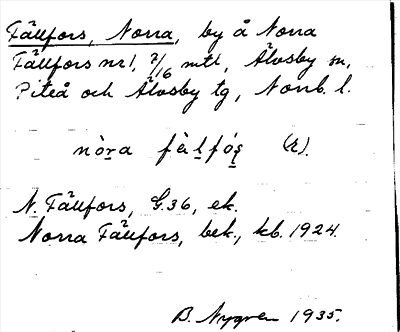 Fällfors, Norra, by å Norra
Fällfors nr 1, 7/16 mtl, Älvsby sn,
Piteå och Älvsby tg, Norrb. l.
nòra fälfǫ́ș (R).
N. Fällfors, G.36, ek.
Norra Fällfors, bek., kb. 1924.
B. Nygren 1935.